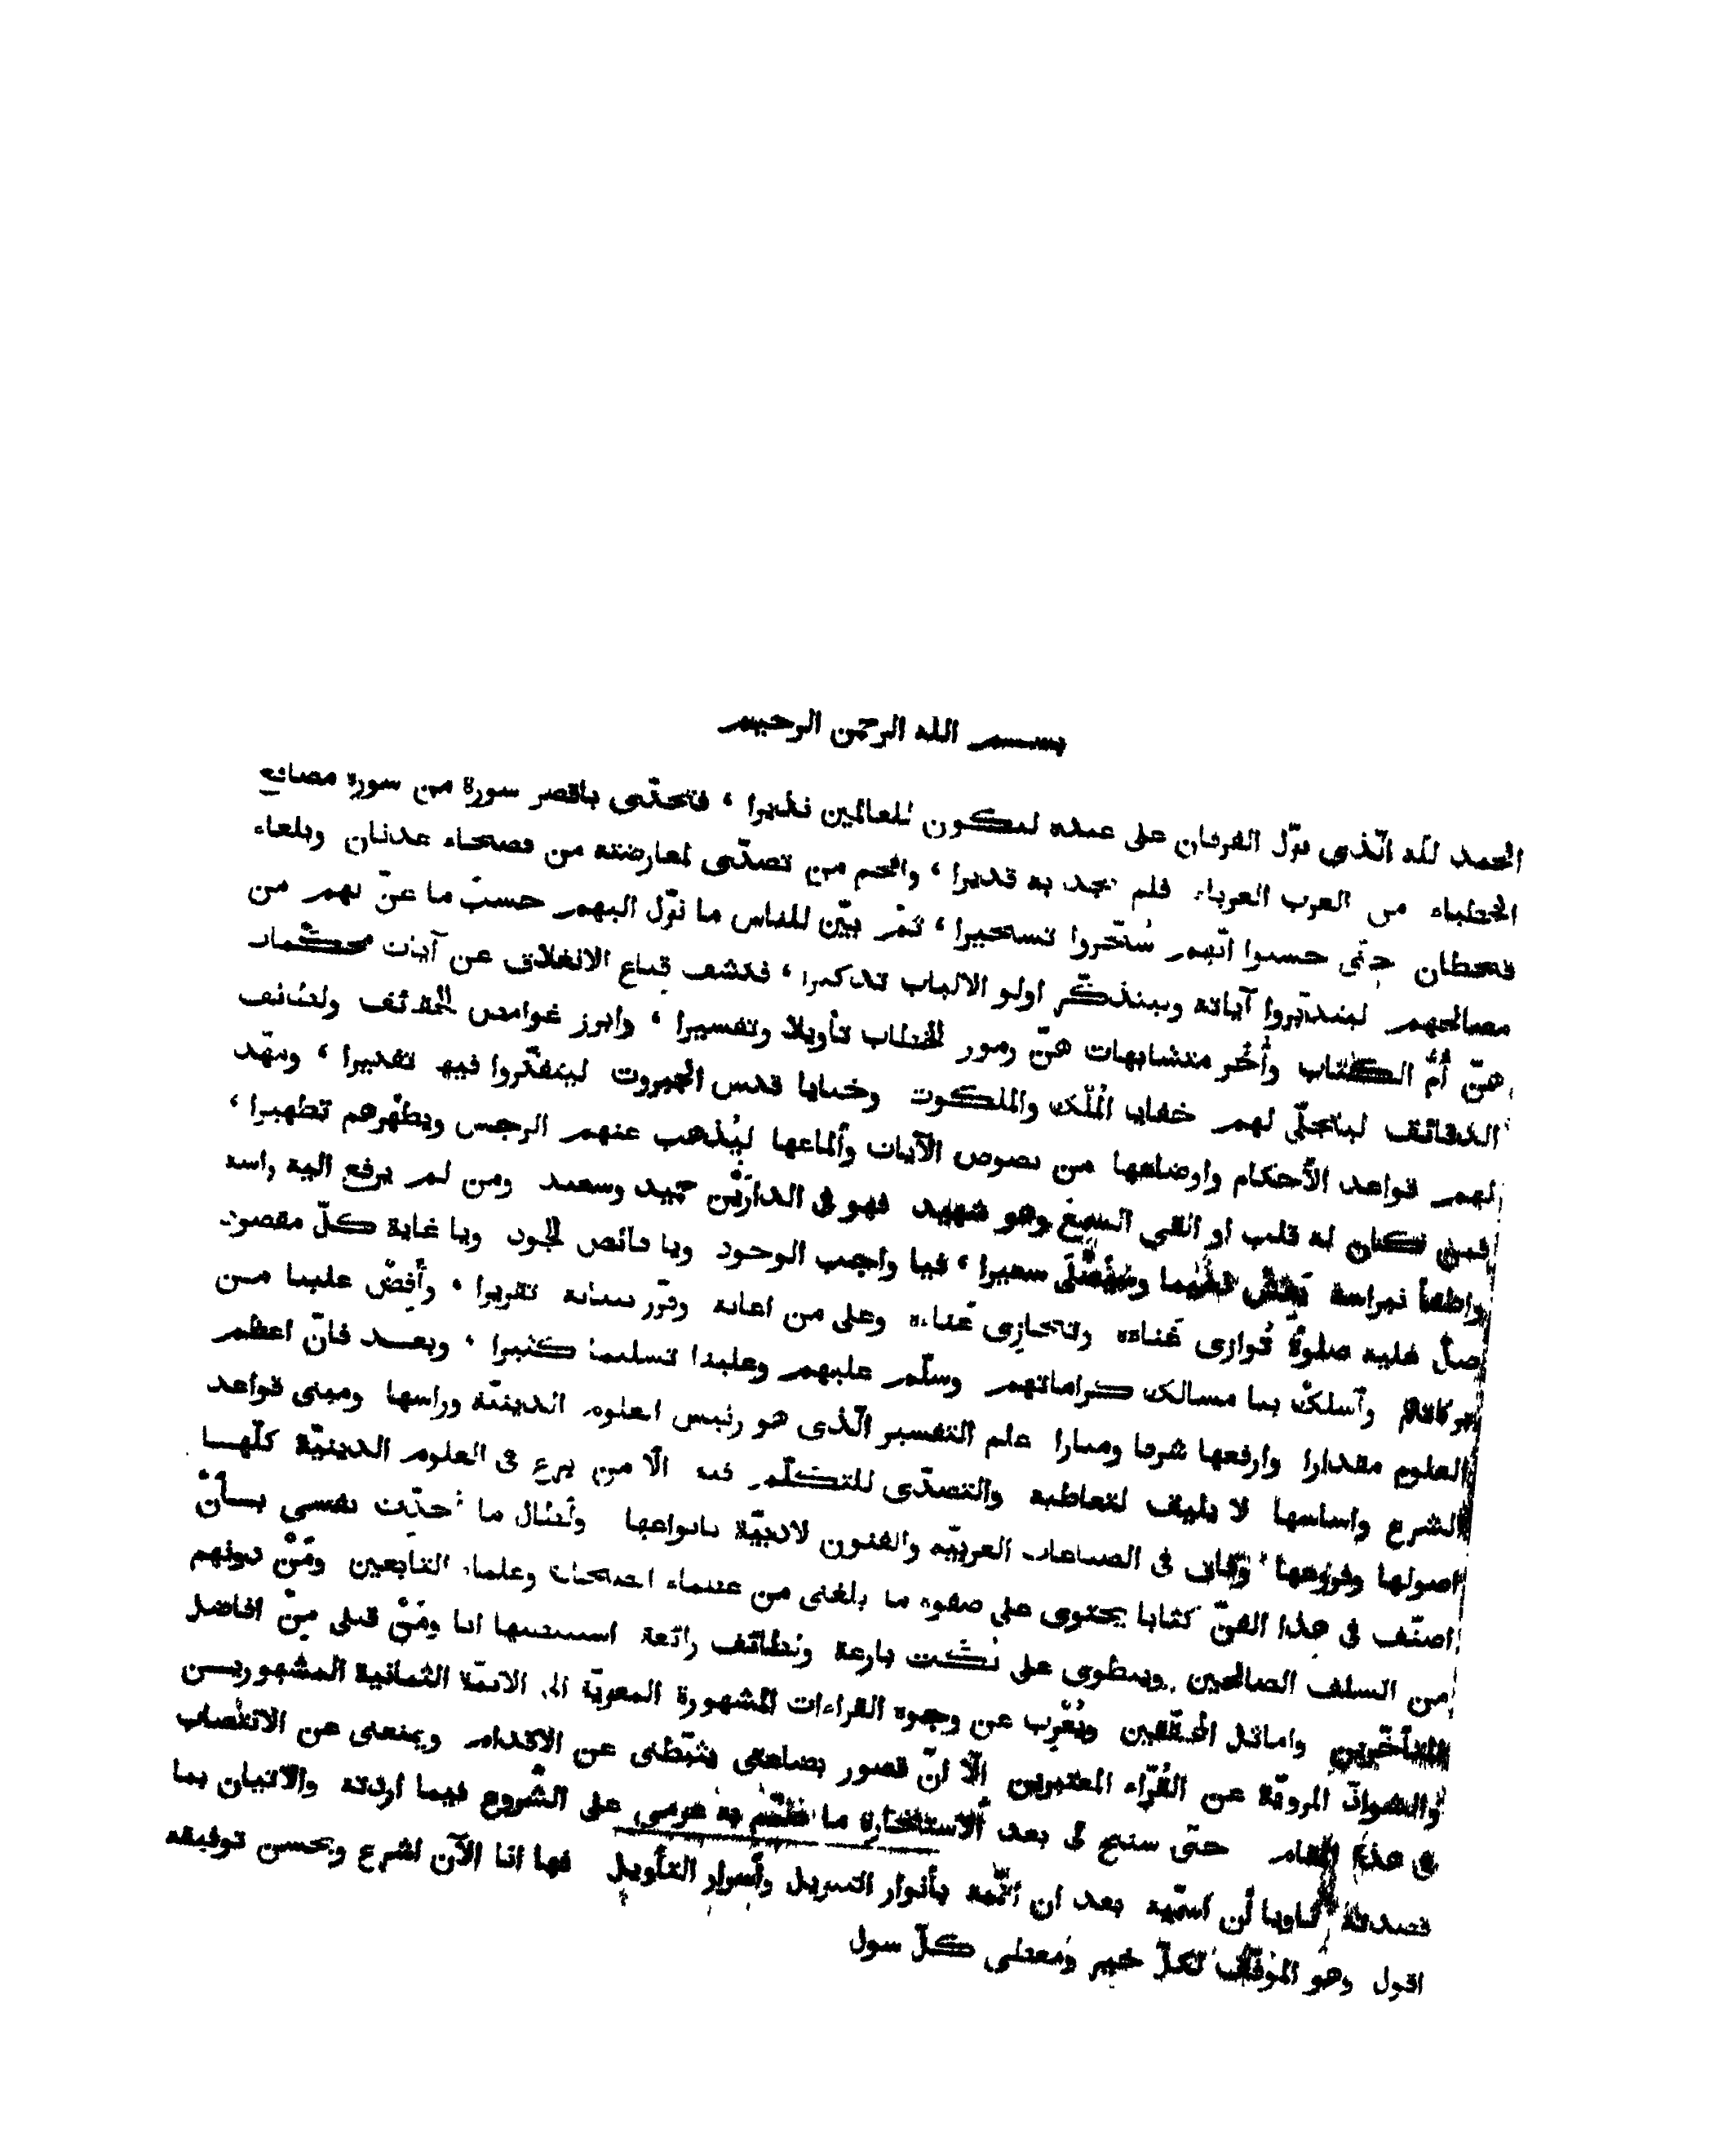 بسم الله الرحمن الرحيم
الحمد لله الّذى نزّل الفرقان على عبده ليكون للعالمين نذيرا ، فتحدّى باقصر سورة من سوره مصاقع
الخطباء من العرب العرباء فلم يجد به قديرا ، وافحم من تصدّى لمعارضته من فصحاء عدنان وبلغاء
قحطان حتّى حسبوا انّهم سُحّروا تسحيرا ، ثمّ بيّن للناس ما نزّل اليهم حسبَ ما عنّ لهم من
مصالحهم ليتدبّروا آياته وليتذكّر اولو الالباب تذكيرا ، فكشف قناع الانغلاق عن آيات محكمات
هنّ أُمُّ الكتاب وأُخَر متشابهات هنّ رموز الخطاب تأويلا وتفسيرا ، وابرز غوامض الحقائق ولطائف
الدقائق ليتجلّى لهم خفايا المُلْك والملكوت وخبايا قدس الجبروت ليتفكّروا فيها تفكيرا ، ومهّد
لهم قواعد الأحكام واوضاعها من نصوص الآيات وألماعها ليُذهب عنهم الرجس ويطهّرهم تطهيرا ،
فمن كان له قلب او القى السمع وهو شهيد فهو فى الدارَيْن حميد وسعيد ومن لم يرفع اليه راسه
واطفأ نبراسه يعش ذميما وسيصلى سعيرا ، فيا واجب الوجود ويا فائض الجود ويا غاية كلّ مقصود
صلّ عليه صلوةً تُوازى غَناءه وتُجازِى عَناءه وعلى من اعانه وقرّر تبيانه تقريرا ، وأَفِضْ علينا من
بركاتهم وٱسلكْ بنا مسالك كراماتهم وسلّم عليهم وعلينا تسليما كثيرا ، وبعد فانّ اعظم
العلوم مقدارا وارفعها شرفا ومنارا علم التفسير الّذى هو رئيس العلوم الدينيّة وراسها ومبنى قواعد
الشرع واساسها لا يليق لتعاطيه والتصدّى للتكلّم فيه الّا من برع فى العلوم الدينيّة كلّها
اصولها وفروعها وفاق فى الصناعات العربيّة والفنون الادبيّة بانواعها ولطال ما أُحدّث نفسى بأن
اصنّف فى هذا الفنّ كتابا يحتوى على صفوة ما بلغنى من عظماء الصحابة وعلماء التابعين ومَنْ دونهم
من السلف الصالحين وينطوى على نُكَت بارعة ولطائف رائعة استنبطتها انا ومَنْ قبلى مِنْ افاضل
المتأخّرين واماثل المحقّقين ويُعْرِب عن وجوه القراءات المشهورة المعزيّة الى الائمّة الثمانية المشهورين
والشواذّ المرويّة عن القُرّاء المعتبرين الّا انّ قصور بضاعتى يثبّطنى عن الاقدام ويمنعنى عن الانتصاب
فى هذا المقام حتّى سنح لى بعد الاستخارة ما صمّم به عزمى على الشروع فيما اردته والاتيان بما
قصدته ناويا أن اسمّيه بعد ان اتمّمه بأنوار التنزيل وأسرار التأويل فها انا الآن اشرع وبحسن توفيقه
اقول وهو الموفّق لكلّ خير ومعطى كلّ سول